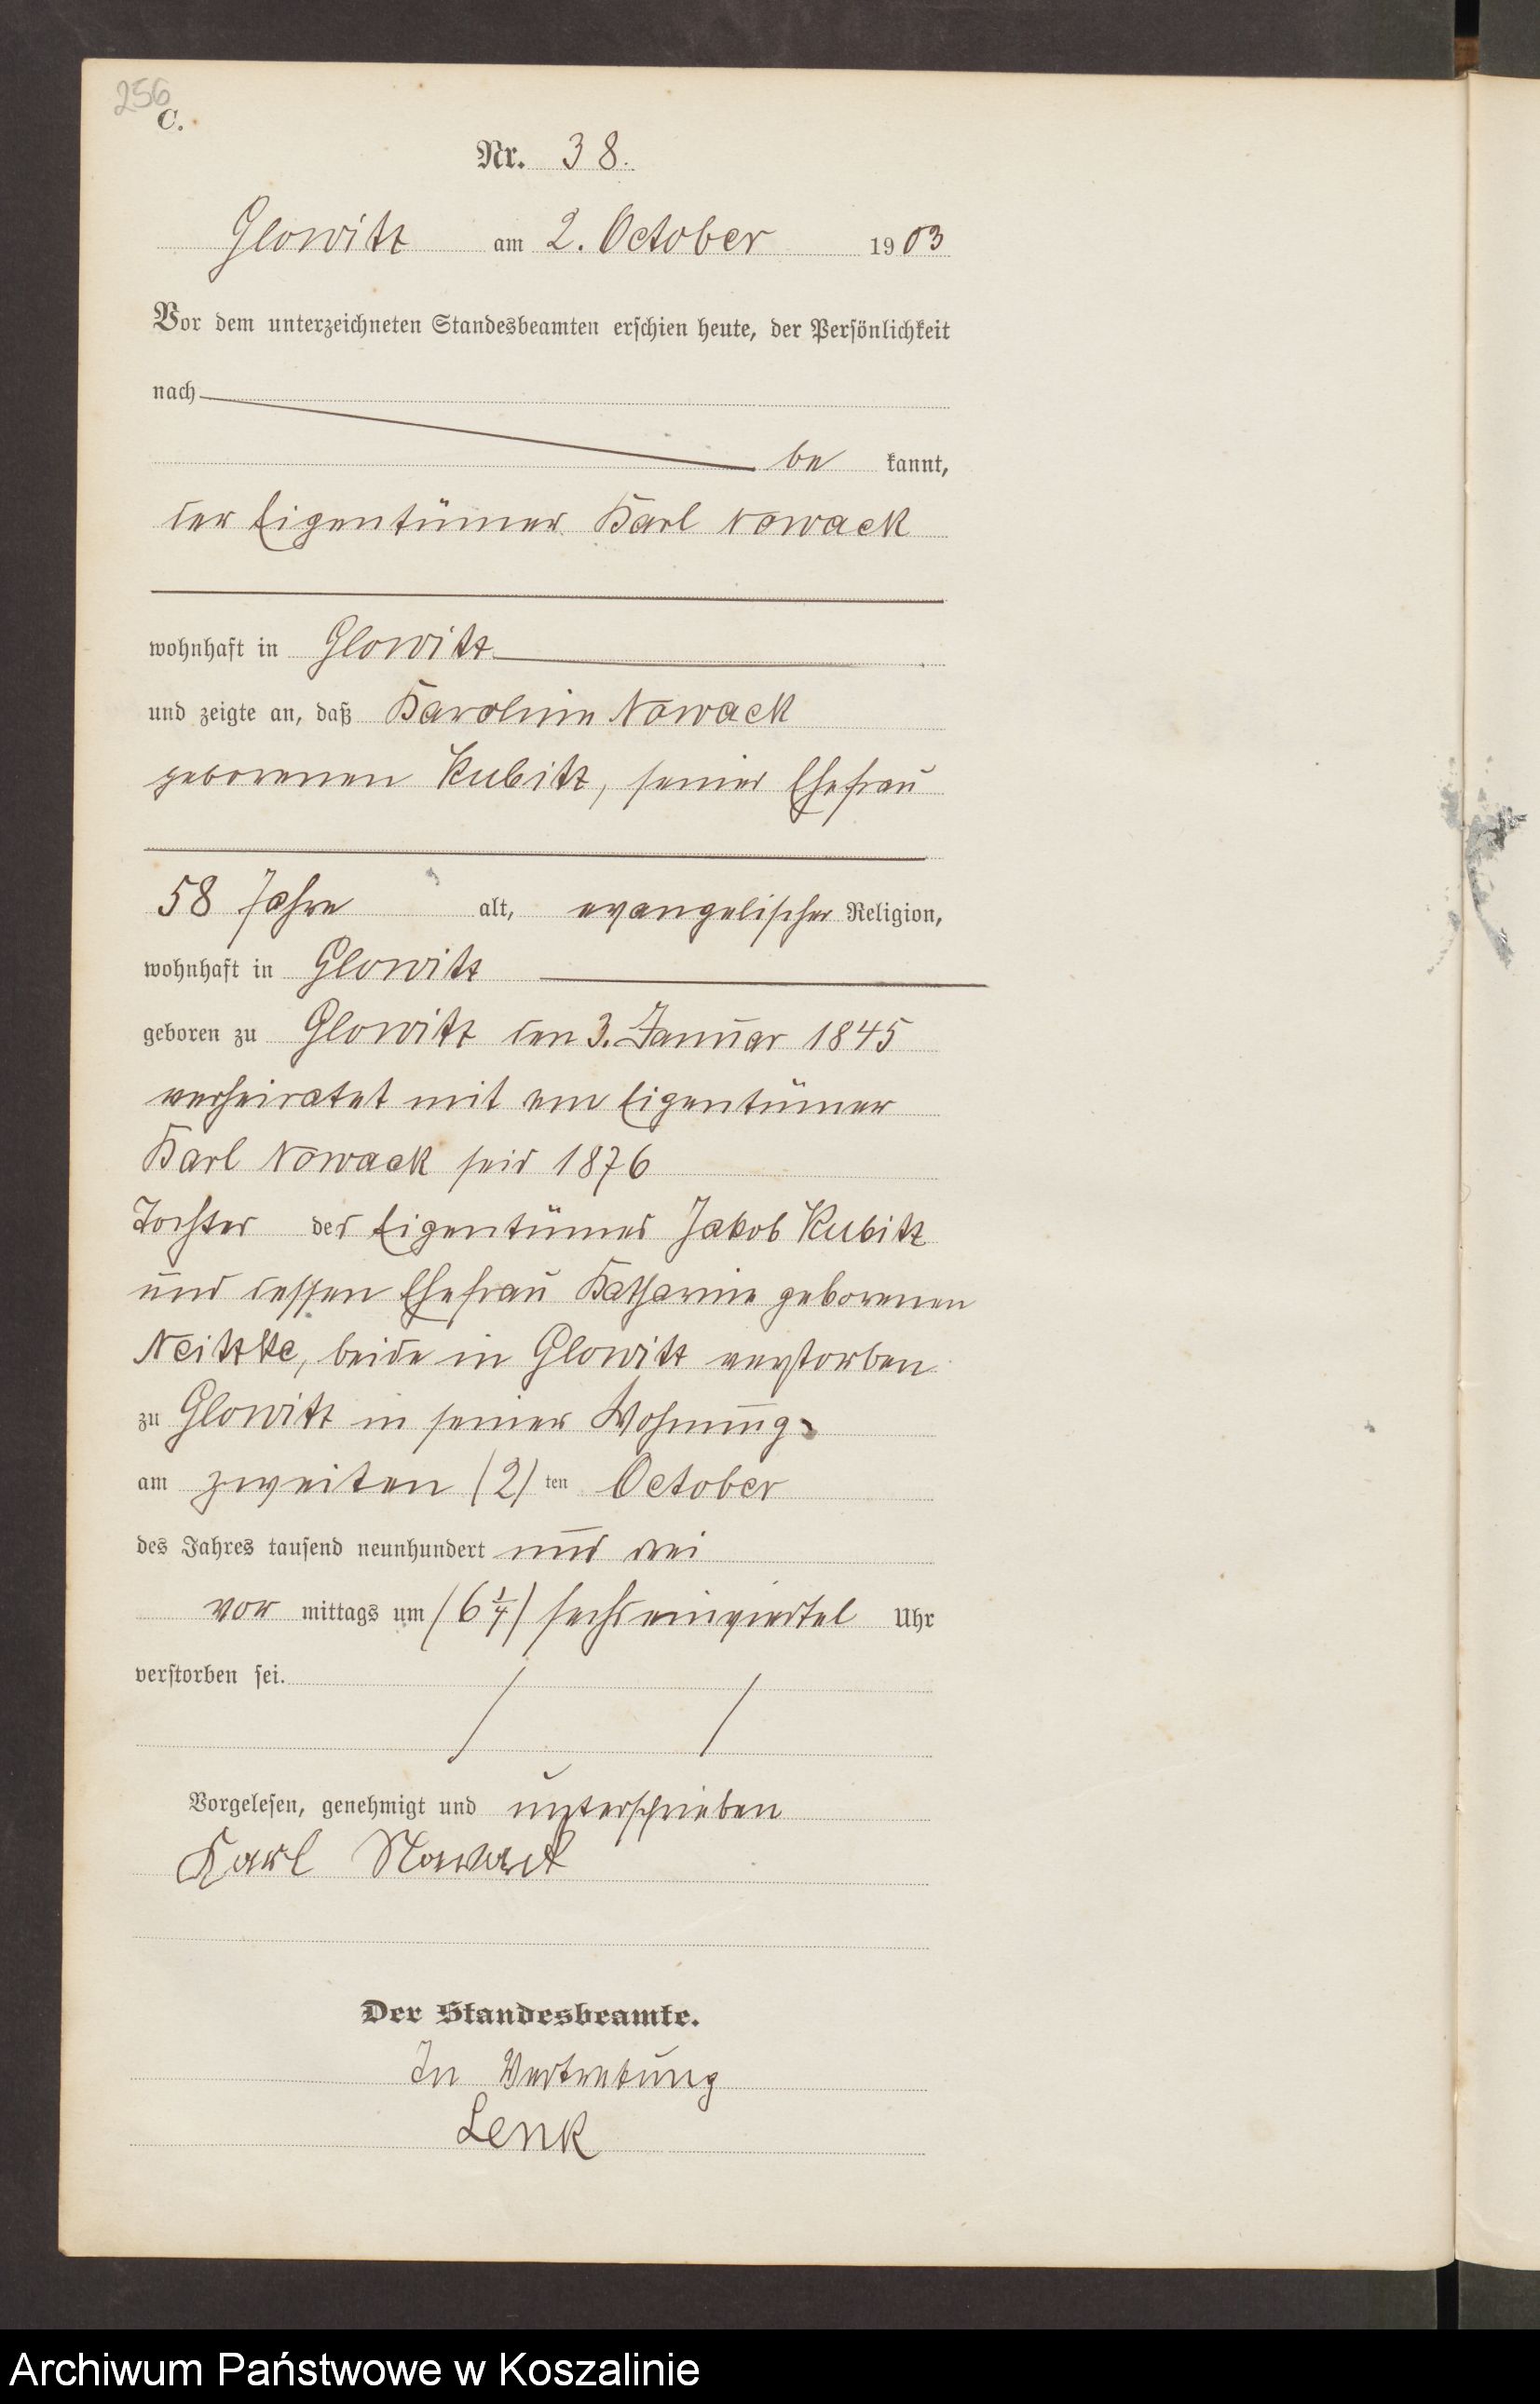 256
C.
Nr. 38.
Glowitz am 2. October 1903
Vor dem unterzeichneten Standesbeamten erschien heute, der Persönlichkeit
nach
be kannt,
der Eigentümer Karl Nowack
wohnhaft in Glowitz
und zeigte an, daß Karoline Nowack
geborenen Kubitz, seiner Ehefrau
58 Jahre alt, evangelischer Religion,
wohnhaft in Glowitz
geboren zu Glowitz den 3. Januar 1845
verheiratet mit em Eigentümer
Karl Nowack seid 1876
Tochter des Eigentümers Jakob Kubitz
und dessen Ehefrau Katharine geborenen
Neitzke, beide in Glowitz verstorben
zu Glowitz in seiner Wohnung
am zweiten (2) ten October
des Jahres tausend neunhundert und drei
vor mittags um (6 1/4) sechseinviertel Uhr
verstorben sei.
Vorgelesen, genehmigt und unterschrieben
Karl Nowack
Der Standesbeamte.
In Vertretung
Lenk
Archiwum Państwowe w Koszalinie